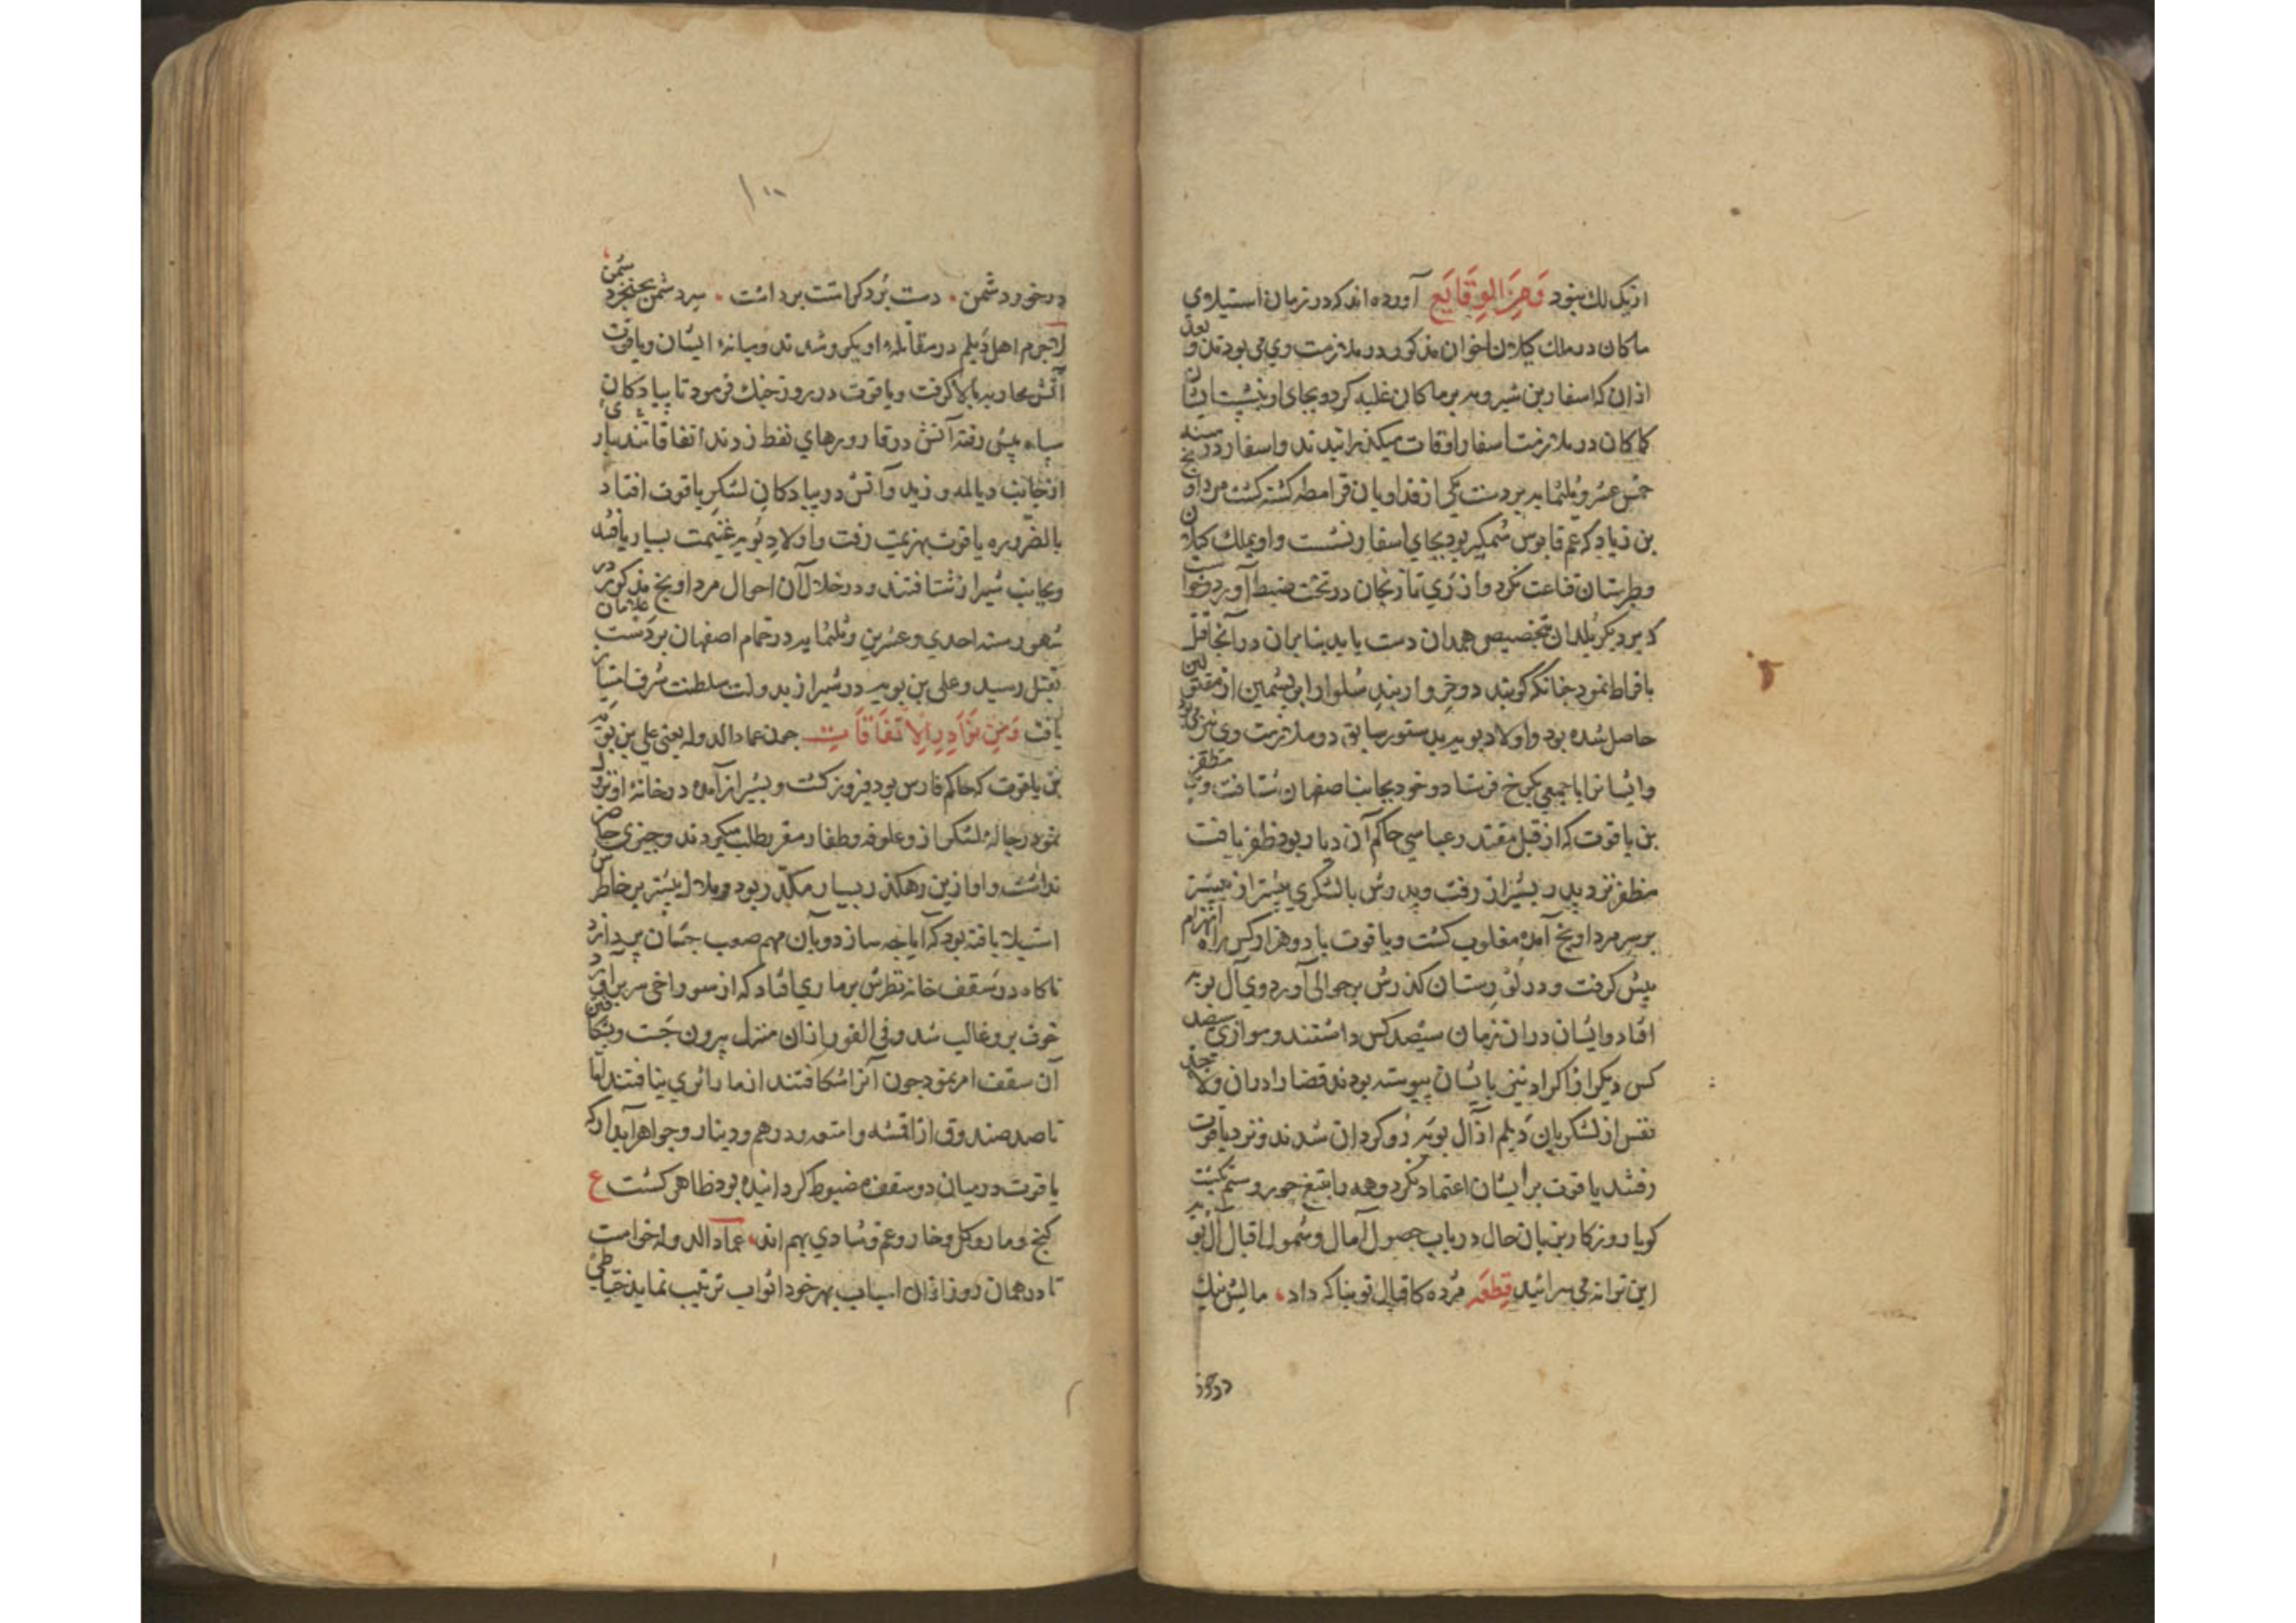 ازیک لک بنود وَمِنَ الوَقَایِع آورده اند که در زمان استیلاي
ماکان در ملك کیلان اخوان مذکور در ملازمت وي می بودند و بعد
ازان که اسفار بن شیرویه بر ماکان غلبه کرد و بجای او بنشست ایشان
کماکان در ملازمت اسفار اوقات میکذرانیدند و اسفار در سنه
خمس عشر و ثلثمایه بر دست یکی از فداویان قرامطه کشته کشت مرداویخ
بن زیاد که عم قابوس شمکیر بود بجاي اسفار نشست و او بملك کیلان
وطبرستان قناعت نکرد و از ري تا زنجان در تحت ضبط آورد خواست
که بر دیکر بلدان بتخصیص همدان دست یابد بنابران در آنجا قتل
بافراط نمود چنانکه کویند دو خروار بند شلوار ابریشمین از مقتولین
حاصل شده بود و اولاد بویه بدستور سابق در ملازمت وي می بودند
وایشانرا با جمعی بکرخ فرستاد و خود بجانب اصفهان شتافت و بر مظفر
بن یاقوت که از قبل مقتدر عباسي حاکم آن دیار بود ظفر یافت
مظفر نزد پدر بشیراز رفت و پدرش با لشکري بیشتر از پیشتر
بر سر مرداویخ آمده مغلوب کشت و یاقوت با دو هزار کس راه انهزام
پیش کرفت و در لورستان کذرش بر حوالی اردوي آل بویه
افتاد و ایشان دران زمان سیصد کس داشتند و موازي سیصد
کس دیکر از اکراد نیز بایشان پیوسته بودند قضا را دران ولا چند
نفس از لشکریان دیلم از آل بویه روکردان شدند و نزد یاقوت
رفتند یاقوت بر ایشان اعتماد نکرد و همه را بتیغ جور و ستم بکشت
کویا روزکار بزبان حال در باب حصول آمال و شمول اقبال آل بویه
این ترانه می سرائید قِطعَه مژده که اقبال تو بنیاد داد، مالش نیك
در خورد
۱۰۰
در خورد شمن • دست بُرد کرامتت برداشت • سر دشمن بخنجر دشمن
لاجرم اهل دیلم در مقاتله او یکرو شدند و میانه ایشان و یاقوت
آتش محاربه بالا کرفت و یاقوت در روز جنك فرمود تا پیادکان
سپاه پیش رفته آتش در قارورهاي نفط زدند اتفاقا تندبادي
از جانب دیالمه وزید و آتش در پیادکان لشکر یاقوت افتاد
بالضروره یاقوت بهزیمت رفت و اولاد بویه غنیمت بسیار یافته
و بجانب شیراز شتافتند و در خلال آن احوال مرداویخ مذکور در
شهور سنه احدي و عشرین و ثلثمایه در حمام اصفهان بر دست غلامان
بقتل رسید و علی بن بویه در شیراز بدولت سلطنت شرف امتیاز
یافت وَمِن نَوَادِرِ الاِتّفَاقَات چون عماد الدوله یعنی علی بن بویه
بر یاقوت که حاکم فارس بود فیروز کشت و بشیراز آمده در خانۀ او نزول
نمود رجاله لشکر از و علوفه و طفار مقرر طلب میکردند و چیزی حاضر
نداشت و او ازین رهکذر بسیار مکدر بود و ملال بیشتر بر خاطرش
استیلا یافته بود که آیا چه سازد و بآن مهم صعب چسان پردازد
ناکاه در سقف خانه نظرش بر ماري افتاد که از سوراخی سر برآورد
خوف برو غالب شد و فی الفور ازان منزل بیرون جست و بشکافتن
آن سقف امر نمود چون آنرا شکافتند از مار اثري نیافتند اما
تا صد صندوق از اقمشه و امتعه و درهم و دینار و جواهر آبدار که
یاقوت در میان دو سقف مضبوط کردانیده بود ظاهر کشت ع
کنج و مار و کل و خار و غم و شادي بهم اند، عماد الدوله خواست
تا در همان روز ازان اسباب بهر خود اثواب ترتیب نماید خیاطی